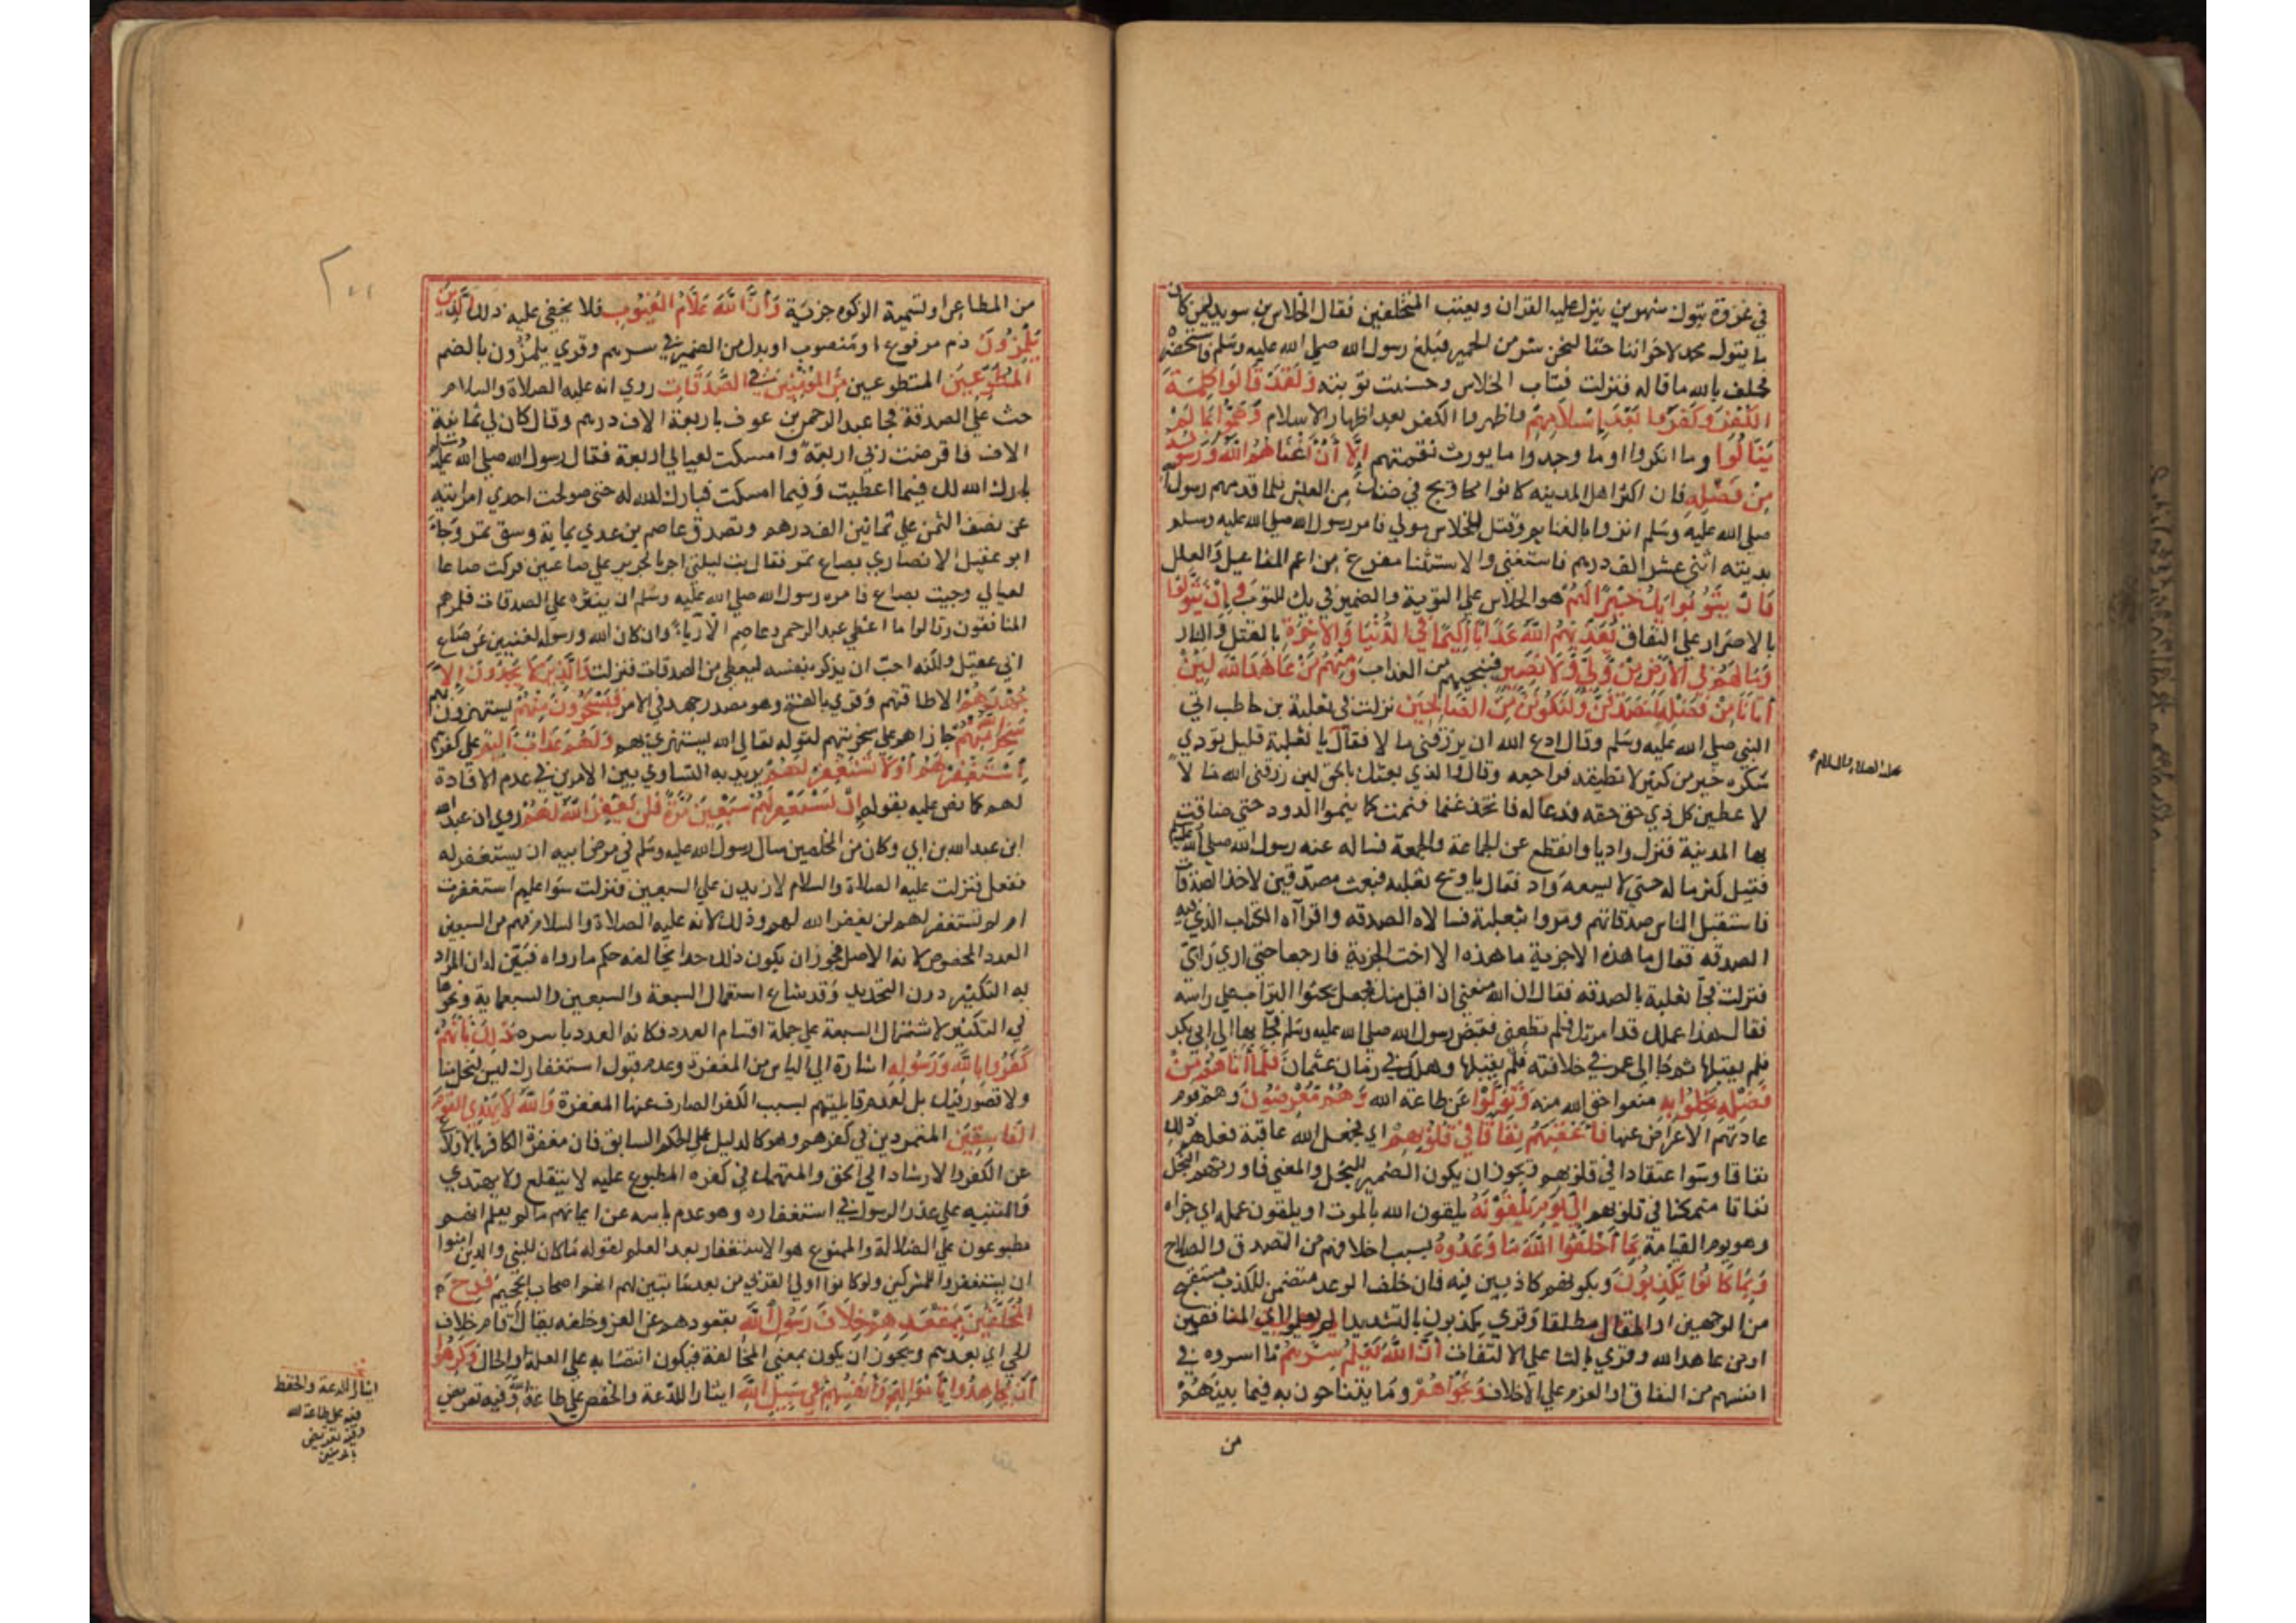 في غزوة تبوك شهرين ينزل عليه القران ويعيب المتخلفين فقال الجلاس بن سويد لئن كان
ما يقول محمد لاخواننا حقا لنحن شر من الحمير فبلغ رسول الله صلى الله عليه وسلم فاستحضره
فحلف بالله ما قاله فنزلت فتاب الجلاس وحسنت توبته وَلَقَدْ قَالُوا كَلِمَةَ
الكُفْرِ وَكَفَرُوا بَعْدَ إِسْلَامِهِمْ واظهروا الكفر بعد اظهار الاسلام وَهَمُّوا بِمَا لَمْ
يَنَالُوا وما انكروا او ما وجدوا ما يورث نقمتهم إِلَّا أَنْ أَغْنَاهُمُ اللهُ وَرَسُولُهُ
مِنْ فَضْلِهِ فان اكثر اهل المدينه كانوا محاويج في ضنك من العيش فلما قدمهم رسول الله
صلى الله عليه وسلم اثروا بالغنايم وقتل للجلاس مولى فامر رسول الله صلى الله عليه وسلم
بديته اثنى عشر الف درهم فاستغنى والاستثنا مفرغ من اعم المفاعيل والعلل
فَإِنْ يَتُوبُوا يَكُ خَيْرًا لَهُمْ هو الجلاس على التوبة والضمير في يك للتوب وَإِنْ يَتَوَلَّوْا
بالاصرار على النفاق يُعَذِّبْهُمُ اللهُ عَذَابًا أَلِيمًا فِي الدُّنْيَا وَالآخِرَةِ بالقتل والنار
وَمَا لَهُمْ فِي الأَرْضِ مِنْ وَلِيٍّ وَلَا نَصِيرٍ فينجيهم من العذاب وَمِنْهُمْ مَنْ عَاهَدَ اللهَ لَئِنْ
آتَانَا مِنْ فَضْلِهِ لَنَصَّدَّقَنَّ وَلَنَكُونَنَّ مِنَ الصَّالِحِينَ نزلت في ثعلبة بن حاطب اتى
النبي صلى الله عليه وسلم وقال ادع الله ان يرزقني مالا فقال يا ثعلبة قليل تودي
شكره خير من كثير لا تطيقه فراجعه وقال والذي بعثك بالحق لين رزقني الله مالا
لاعطين كل ذي حق حقه فدعا له فاتخذ غنما فنمت كما ينموا الدود حتى ضاقت
بها المدينة فنزل واديا وانقطع عن الجماعة والجمعة فسال عنه رسول الله صلى الله عليه
فقيل كثر ماله حتى لا يسعه واد فقال يا ويح ثعلبه فبعث مصدقين لاخذ الصدقات
فاستقبل الناس صدقاتهم ومروا بثعلبة فسالاه الصدقه واقراه الكتاب الذي فيه
الصدقه فقال ما هذه الا جزية ما هذه الا اخت الجزية فارجعا حتى ارى رايي
فنزلت فجا ثعلبة بالصدقه فقال ان الله منعني ان اقبل منك فجعل يحثوا التراب على راسه
فقال هذا عملك قد امرتك فلم تطعني فقبض رسول الله صلى الله عليه وسلم فجا بها الى ابي بكر
فلم يقبلها ثم جا الى عمر في خلافته فلم يقبلها وهلك في زمان عثمان فَلَمَّا آتَاهُمْ مِنْ
فَضْلِهِ بَخِلُوا بِهِ منعوا حق الله منه وَتَوَلَّوْا عن طاعة الله وَهُمْ مُعْرِضُونَ وهم قوم
عادتهم الاعراض عنها فَأَعْقَبَهُمْ نِفَاقًا فِي قُلُوبِهِمْ اي فجعل الله عاقبة فعلهم ذلك
نفاقا وسوا عتقادا في قلوبهم ويجوز ان يكون الضمير للبخل والمعنى فاورثهم البخل
نفاقا متمكنا في قلوبهم إِلَى يَوْمِ يَلْقَوْنَهُ يلقون الله بالموت او يلقون عمله اي جزاه
وهو يوم القيامة بِمَا أَخْلَفُوا اللهَ مَا وَعَدُوهُ بسبب اخلافهم من التصدق والصلاح
وَبِمَا كَانُوا يَكْذِبُونَ وبكونهم كاذبين فيه فان خلف الوعد متضمن للكذب مستقبح
من الوجهين او المقال مطلقا وقري يكذبون بالتشديد الم يعلموا اي المنافقون
او من عاهد الله وقري بالتا على الالتفات أَنَّ اللهَ يَعْلَمُ سِرَّهُمْ ما اسروه في
انفسهم من النفاق او العزم على الاخلاف وَنَجْوَاهُمْ وما يتناجون به فيما بينهم
من
عليه الصلاة والسلام
٢٠٠
من المطاعن او تسمية الزكوه جزية وَأَنَّ اللهَ عَلَّامُ الغُيُوبِ فلا يخفى عليه ذلك الَّذِينَ
يَلْمِزُونَ ذم مرفوع او منصوب او بدل من الضمير في سرهم وقري يلمزون بالضم
المُطَّوِّعِينَ المتطوعين مِنَ المُؤْمِنِينَ فِي الصَّدَقَاتِ روي انه عليه الصلاة والسلام
حث على الصدقة فجا عبد الرحمن بن عوف باربعة الاف درهم وقال كان لي ثمانية
الاف فاقرضت ربي اربعة وامسكت لعيالي اربعة فقال رسول الله صلى الله عليه وسلم
بارك الله لك فيما اعطيت وفيما امسكت فبارك الله له حتى صولحت احدى امراتيه
عن نصف الثمن على ثمانين الف درهم وتصدق عاصم بن عدي بماية وسق تمر وجا
ابو عقيل الانصاري بصاع تمر فقال بت ليلتي اجر بالجرير على صاعين فتركت صاعا
لعيالي وجيت بصاع فامره رسول الله صلى الله عليه وسلم ان ينثره على الصدقات فلمزهم
المنافقون وقالوا ما اعطى عبد الرحمن وعاصم الا رياء وان كان الله ورسوله لغنيين عن صاع
ابي عقيل ولكنه احب ان يذكر بنفسه ليعطى من الصدقات فنزلت وَالَّذِينَ لَا يَجِدُونَ إِلَّا
جُهْدَهُمْ الا طاقتهم وقري بالفتح وهو مصدر جهد في الامر فَيَسْخَرُونَ مِنْهُمْ يستهزون بهم
سَخِرَ اللهُ مِنْهُمْ جازاهم على سخريتهم لقوله تعالى الله يستهزي بهم وَلَهُمْ عَذَابٌ أَلِيمٌ على كفرهم
اسْتَغْفِرْ لَهُمْ أَوْ لَا تَسْتَغْفِرْ لَهُمْ يريد به التساوي بين الامرين في عدم الافادة
لهم كما نص عليه بقوله إِنْ تَسْتَغْفِرْ لَهُمْ سَبْعِينَ مَرَّةً فَلَنْ يَغْفِرَ اللهُ لَهُمْ روي ان عبد الله
ابن عبد الله بن ابي وكان من المخلصين سال رسول الله عليه وسلم في مرض ابيه ان يستغفر له
ففعل فنزلت عليه الصلاة والسلام لازيدن على السبعين فنزلت سوا عليهم استغفرت
ام لم تستغفر لهم لن يغفر الله لهم وذلك لانه عليه الصلاة والسلام فهم من السبعين
العدد المخصوص لانه الاصل فجوز ان يكون ذلك حدا يخالفه حكم ما رواه فبين له ان المراد
به التكثير دون التحديد وقد شاع استعمال السبعة والسبعين والسبعماية ونحوها
في التكثير لاشتمال السبعة على جملة اقسام العدد فكانه العدد باسره ذَلِكَ بِأَنَّهُمْ
كَفَرُوا بِاللهِ وَرَسُولِهِ اشارة الى الياس من المغفرة وعدم قبول استغفارك ليس لبخل منا
ولا قصور فيك بل لعدم قابليتهم بسبب الكفر الصارف عنها المغفرة وَاللهُ لَا يَهْدِي القَوْمَ
الفَاسِقِينَ المتمردين في كفرهم وهو كالدليل على الحكم السابق فان مغفرة الكافر بالاقلاع
عن الكفر والارشاد الى الحق والمنهمك في كفره المطبوع عليه لا ينقلع ولا يهتدي
والتنبيه على عذر الرسول في استغفاره وهو عدم ياسه عن ايمانهم ما لم يعلم انهم
مطبوعون على الضلالة والممنوع هو الاستغفار بعد العلم لقوله ما كان للنبي والذين امنوا
ان يستغفروا للمشركين ولو كانوا اولي القربى من بعد ما تبين لهم انهم اصحاب الجحيم فَرِحَ
المُخَلَّفُونَ بِمَقْعَدِهِمْ خِلَافَ رَسُولِ اللهِ بقعودهم عن الغزو خلفه يقال اقام خلاف
الحي اي بعدهم ويجوز ان يكون بمعنى المخالفة فيكون انتصابه على العلة او الحال وَكَرِهُوا
أَنْ يُجَاهِدُوا بِأَمْوَالِهِمْ وَأَنْفُسِهِمْ فِي سَبِيلِ اللهِ ايثارا للدعة والخفض على طاعة الله وفيه تعريض
ايثارا للدعة والخفض
على طاعة الله
وفيه تعريض
بالمومنين